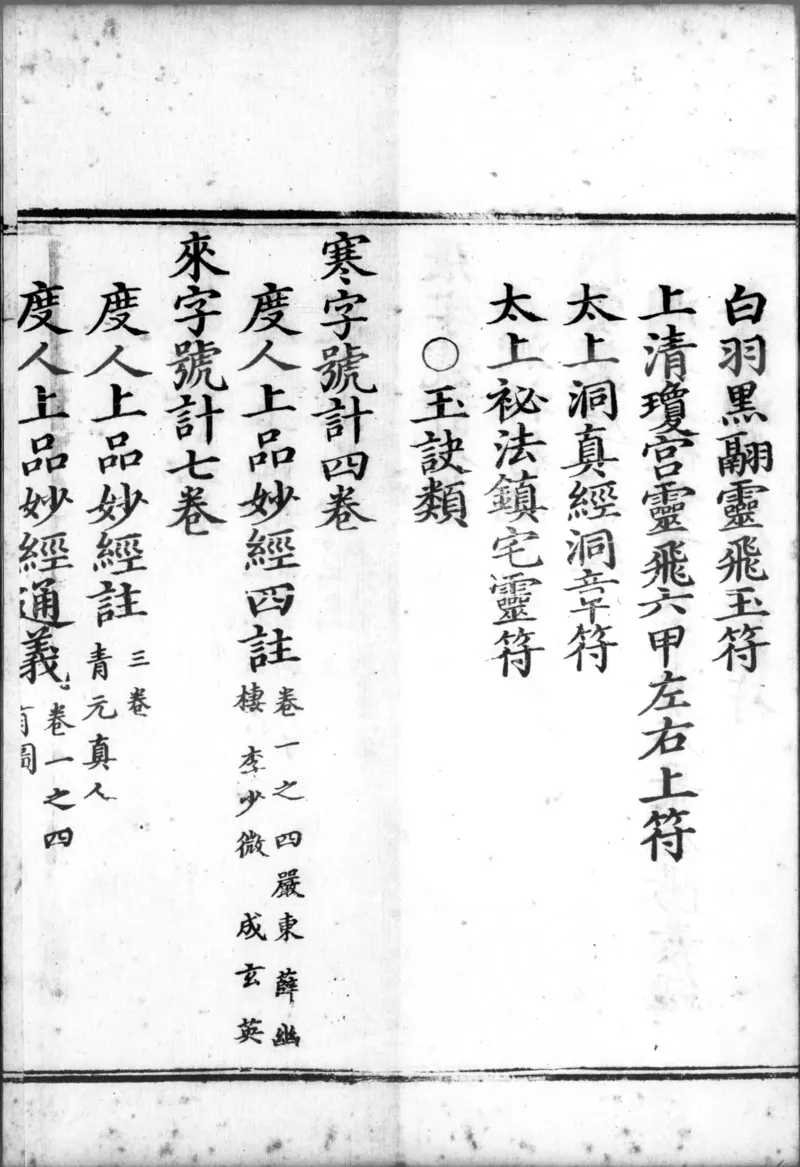 白羽黒翮靈飛玉符
上清瓊宫靈飛六甲左右上符
太上洞真經洞章符
太上祕法鎮宅靈符
○玉訣類
寒字號計四卷
度人上品妙經四註
卷一之四嚴東薛幽
棲李少微成玄英
來字號計七卷
度人上品妙經註
三卷
青元真人
度人上品妙經通義
卷一之四
有圖